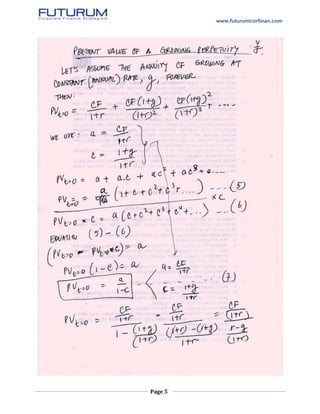 FUTURUM
Corporate Finance Strategists
www.futurumcorfinan.com
PRESENT VALUE OF A GROWING PERPETUITY
LET'S ASSUME THE ANNUITY CF GROWING AT
CONSTANT (ANNUAL) RATE, g, FOREVER
THEN:
PV t=0 = CF/(1+r) + CF(1+g)/(1+r)² + CF(1+g)²/(1+r)³ + ....
WE USE: a = CF/(1+r)
c = (1+g)/(1+r)
PV t=0 = a + a.c + ac² + ac³ + .....
PV t=0 = a (1+c+c²+c³+....) ..... (5)
×c
PV t=0 × c = a (c+c²+c³+c⁴+....) .... (6)
EQUATION (5) - (6)
(PV t=0 - PV t=0 × c) = a
PV t=0 (1-c) = a
a = CF/(1+r)
PV t=0 = a/(1-c) ..... (7)
c = (1+g)/(1+r)
PV t=0 = CF/(1+r) / (1 - (1+g)/(1+r)) = CF/(1+r) / ((1+r)-(1+g)/(1+r)) = CF/(1+r) / (r-g/(1+r))
Page 5